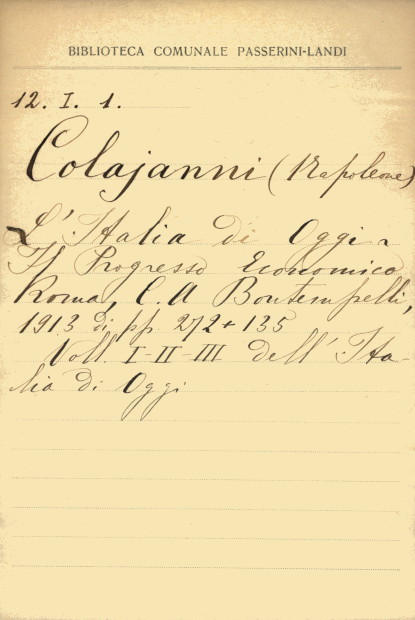 BIBLIOTECA COMUNALE PASSERINI-LANDI
12. I. 1.
Colajanni (Napoleone)
L'Italia di Oggi -
Il Progresso Economico
Roma, C. A Bontempelli,
1913 di pp. 272 + 135
Voll. I-II-III dell'Ita-
lia di Oggi